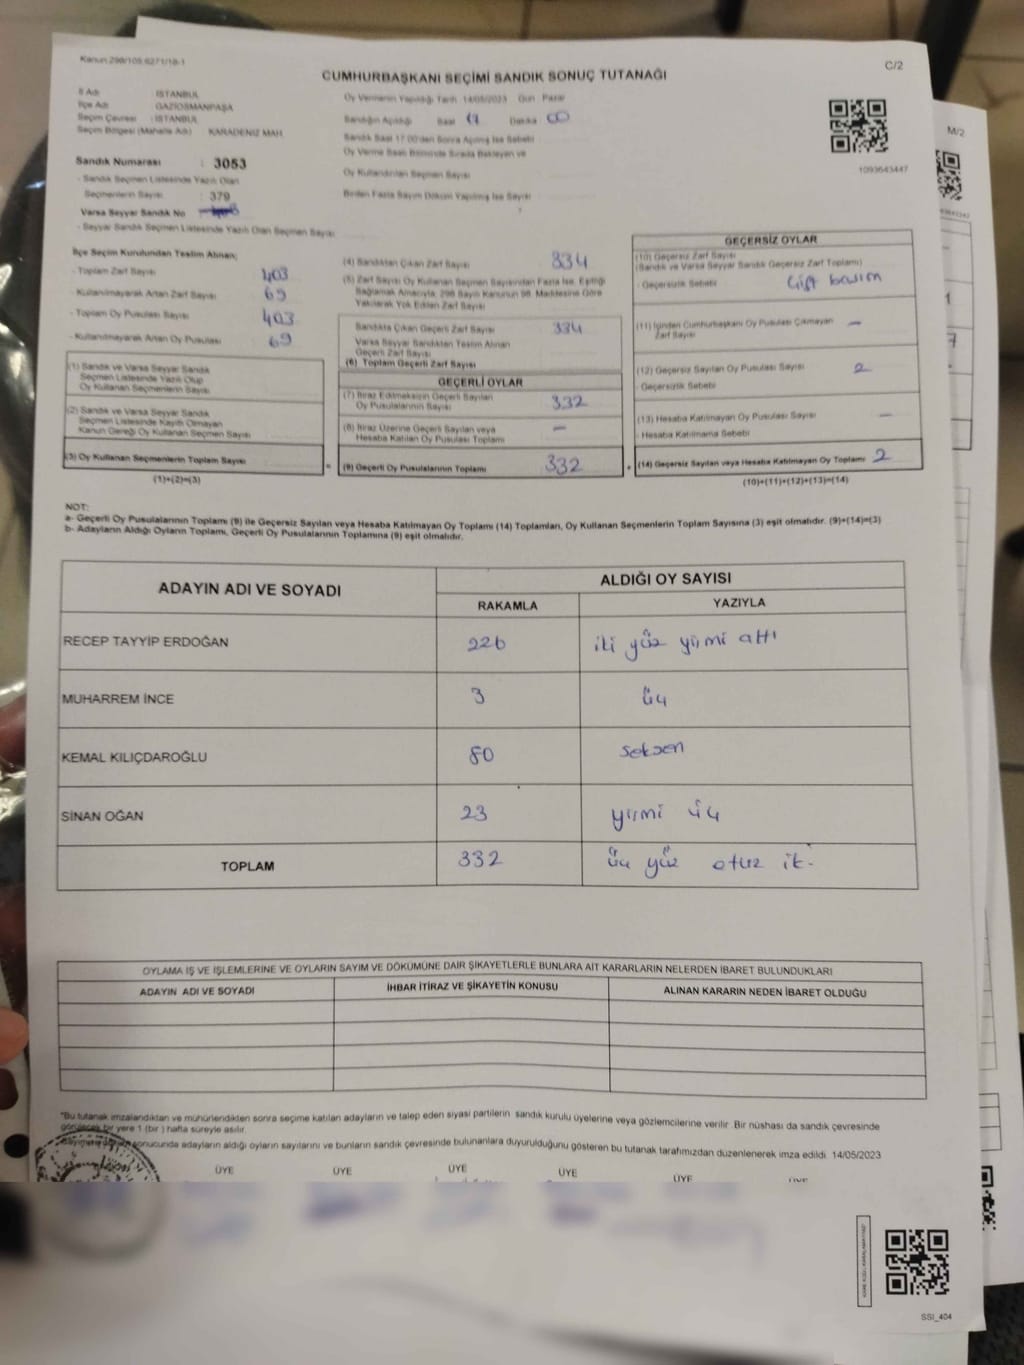 Kanun:298/105.6271/18-1
C/2
CUMHURBAŞKANI SEÇİMİ SANDIK SONUÇ TUTANAĞI
İl Adı İSTANBUL
İlçe Adı GAZİOSMANPAŞA
Seçim Çevresi : İSTANBUL
Seçim Bölgesi (Mahalle Adı) KARADENİZ MAH.
Sandık Numarası : 3053
- Sandık Seçmen Listesinde Yazılı Olan
Seçmenlerin Sayısı : 379
Varsa Seyyar Sandık No
- Seyyar Sandık Seçmen Listesinde Yazılı Olan Seçmen Sayısı
Oy Vermenin Yapıldığı Tarih 14/05/2023 Gün Pazar
Sandığın Açıldığı Saat Dakika
Sandık Saat 17:00'den Sonra Açılmış İse Sebebi
Oy Verme Saati Bitiminde Sırada Bekleyen ve
Oy Kullandırılan Seçmen Sayısı
Birden Fazla Sayım Döküm Yapılmış İse Sayısı
1093643447
M/2
İlçe Seçim Kurulundan Teslim Alınan;
- Toplam Zarf Sayısı 403
- Kullanılmayarak Artan Zarf Sayısı 69
- Toplam Oy Pusulası Sayısı 403
- Kullanılmayarak Artan Oy Pusulası 69
(1) Sandık ve Varsa Seyyar Sandık
Seçmen Listesinde Yazılı Olup
Oy Kullanan Seçmenlerin Sayısı
(2) Sandık ve Varsa Seyyar Sandık
Seçmen Listesinde Kayıtlı Olmayan
Kanun Gereği Oy Kullanan Seçmen Sayısı
(3) Oy Kullanan Seçmenlerin Toplam Sayısı
(1)+(2)=(3)
(4) Sandıktan Çıkan Zarf Sayısı 334
(5) Zarf Sayısı Oy Kullanan Seçmen Sayısından Fazla İse, Eşitliği
Sağlamak Amacıyla; 298 Sayılı Kanunun 98. Maddesine Göre
Yakılarak Yok Edilen Zarf Sayısı
Sandıkta Çıkan Geçerli Zarf Sayısı 334
Varsa Seyyar Sandıktan Teslim Alınan
Geçerli Zarf Sayısı
(6) Toplam Geçerli Zarf Sayısı
GEÇERLİ OYLAR
(7) İtiraz Edilmeksizin Geçerli Sayılan
Oy Pusulalarının Sayısı 332
(8) İtiraz Üzerine Geçerli Sayılan veya
Hesaba Katılan Oy Pusulası Toplamı —
= (9) Geçerli Oy Pusulalarının Toplamı 332
GEÇERSİZ OYLAR
(10) Geçersiz Zarf Sayısı
(Sandık ve Varsa Seyyar Sandık Geçersiz Zarf Toplamı)
- Geçersizlik Sebebi Çift basım
(11) İçinden Cumhurbaşkanı Oy Pusulası Çıkmayan
Zarf Sayısı —
(12) Geçersiz Sayılan Oy Pusulası Sayısı 2
- Geçersizlik Sebebi
(13) Hesaba Katılmayan Oy Pusulası Sayısı —
- Hesaba Katılmama Sebebi
+ (14) Geçersiz Sayılan veya Hesaba Katılmayan Oy Toplamı 2
(10)+(11)+(12)+(13)=(14)
NOT:
a- Geçerli Oy Pusulalarının Toplamı (9) ile Geçersiz Sayılan veya Hesaba Katılmayan Oy Toplamı (14) Toplamları, Oy Kullanan Seçmenlerin Toplam Sayısına (3) eşit olmalıdır. (9)+(14)=(3)
b- Adayların Aldığı Oyların Toplamı, Geçerli Oy Pusulalarının Toplamına (9) eşit olmalıdır.
ADAYIN ADI VE SOYADI ALDIĞI OY SAYISI
RAKAMLA YAZIYLA
RECEP TAYYİP ERDOĞAN 226 iki yüz yirmi altı
MUHARREM İNCE 3 üç
KEMAL KILIÇDAROĞLU 80 seksen
SİNAN OĞAN 23 yirmi üç
TOPLAM 332 üç yüz otuz ik-
OYLAMA İŞ VE İŞLEMLERİNE VE OYLARIN SAYIM VE DÖKÜMÜNE DAİR ŞİKAYETLERLE BUNLARA AİT KARARLARIN NELERDEN İBARET BULUNDUKLARI
ADAYIN ADI VE SOYADI İHBAR İTİRAZ VE ŞİKAYETİN KONUSU ALINAN KARARIN NEDEN İBARET OLDUĞU
"Bu tutanak imzalandıktan ve mühürlendikten sonra seçime katılan adayların ve talep eden siyasi partilerin sandık kurulu üyelerine veya gözlemcilerine verilir .Bir nüshası da sandık çevresinde
görülecek bir yere 1 (bir ) hafta süreyle asılır.
sonucunda adayların aldığı oyların sayılarını ve bunların sandık çevresinde bulunanlara duyurulduğunu gösteren bu tutanak tarafımızdan düzenlenerek imza edildi. 14/05/2023
ÜYE ÜYE ÜYE ÜYE ÜYE
SSI_404